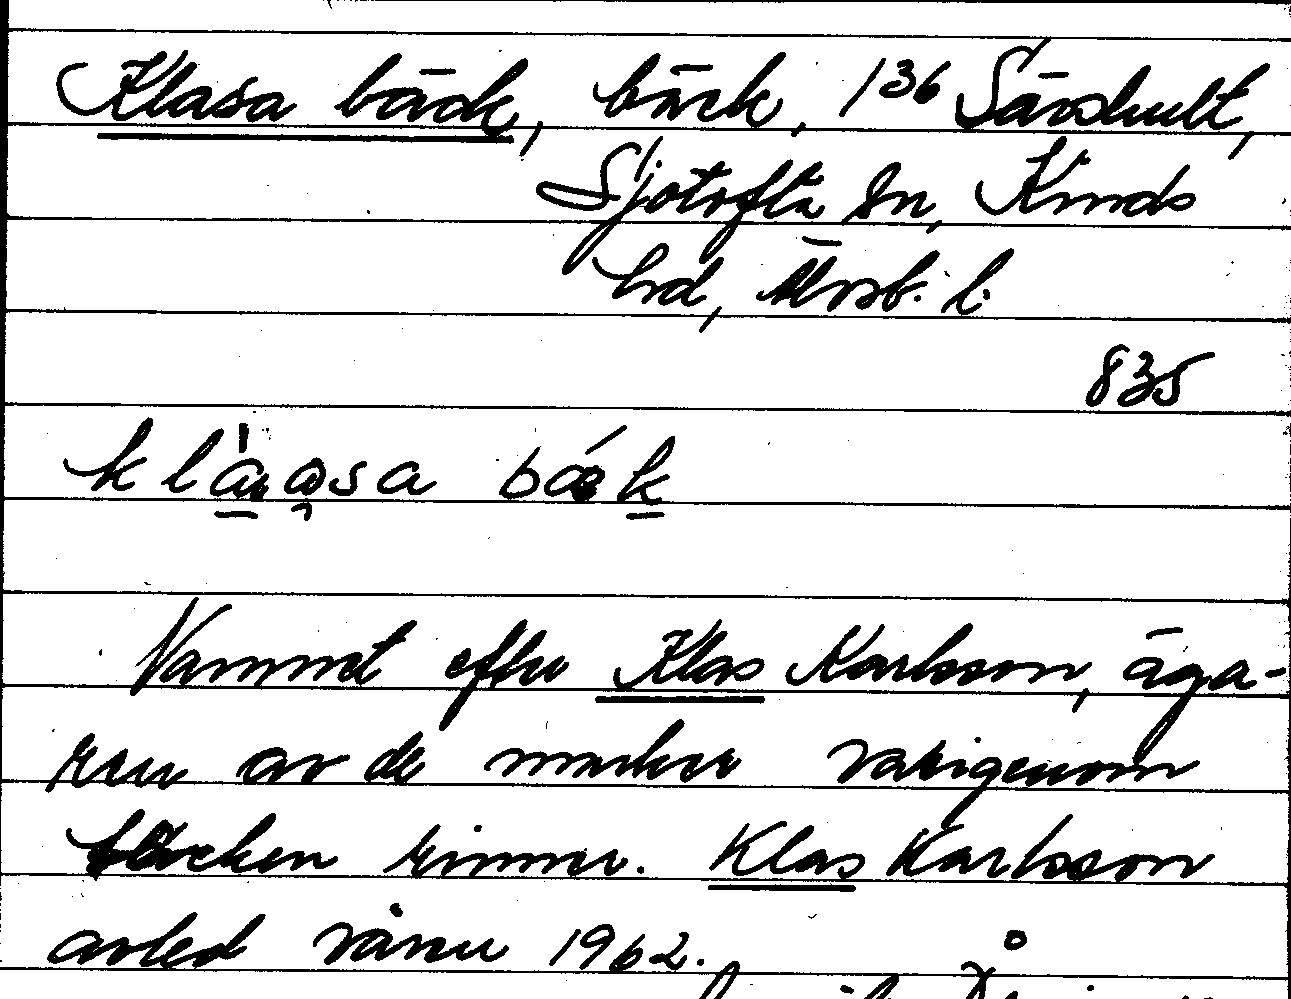 Klasa bäck, bäck, 1³⁶ Sävshult,
Sjötofta sn, Kinds
hd, Älvsb. l.
835
klàsa bǽk
Namnet efter Klas Karlsson, äga-
ren av de marker varigenom
bäcken rinner. Klas Karlsson
avled våren 1962.